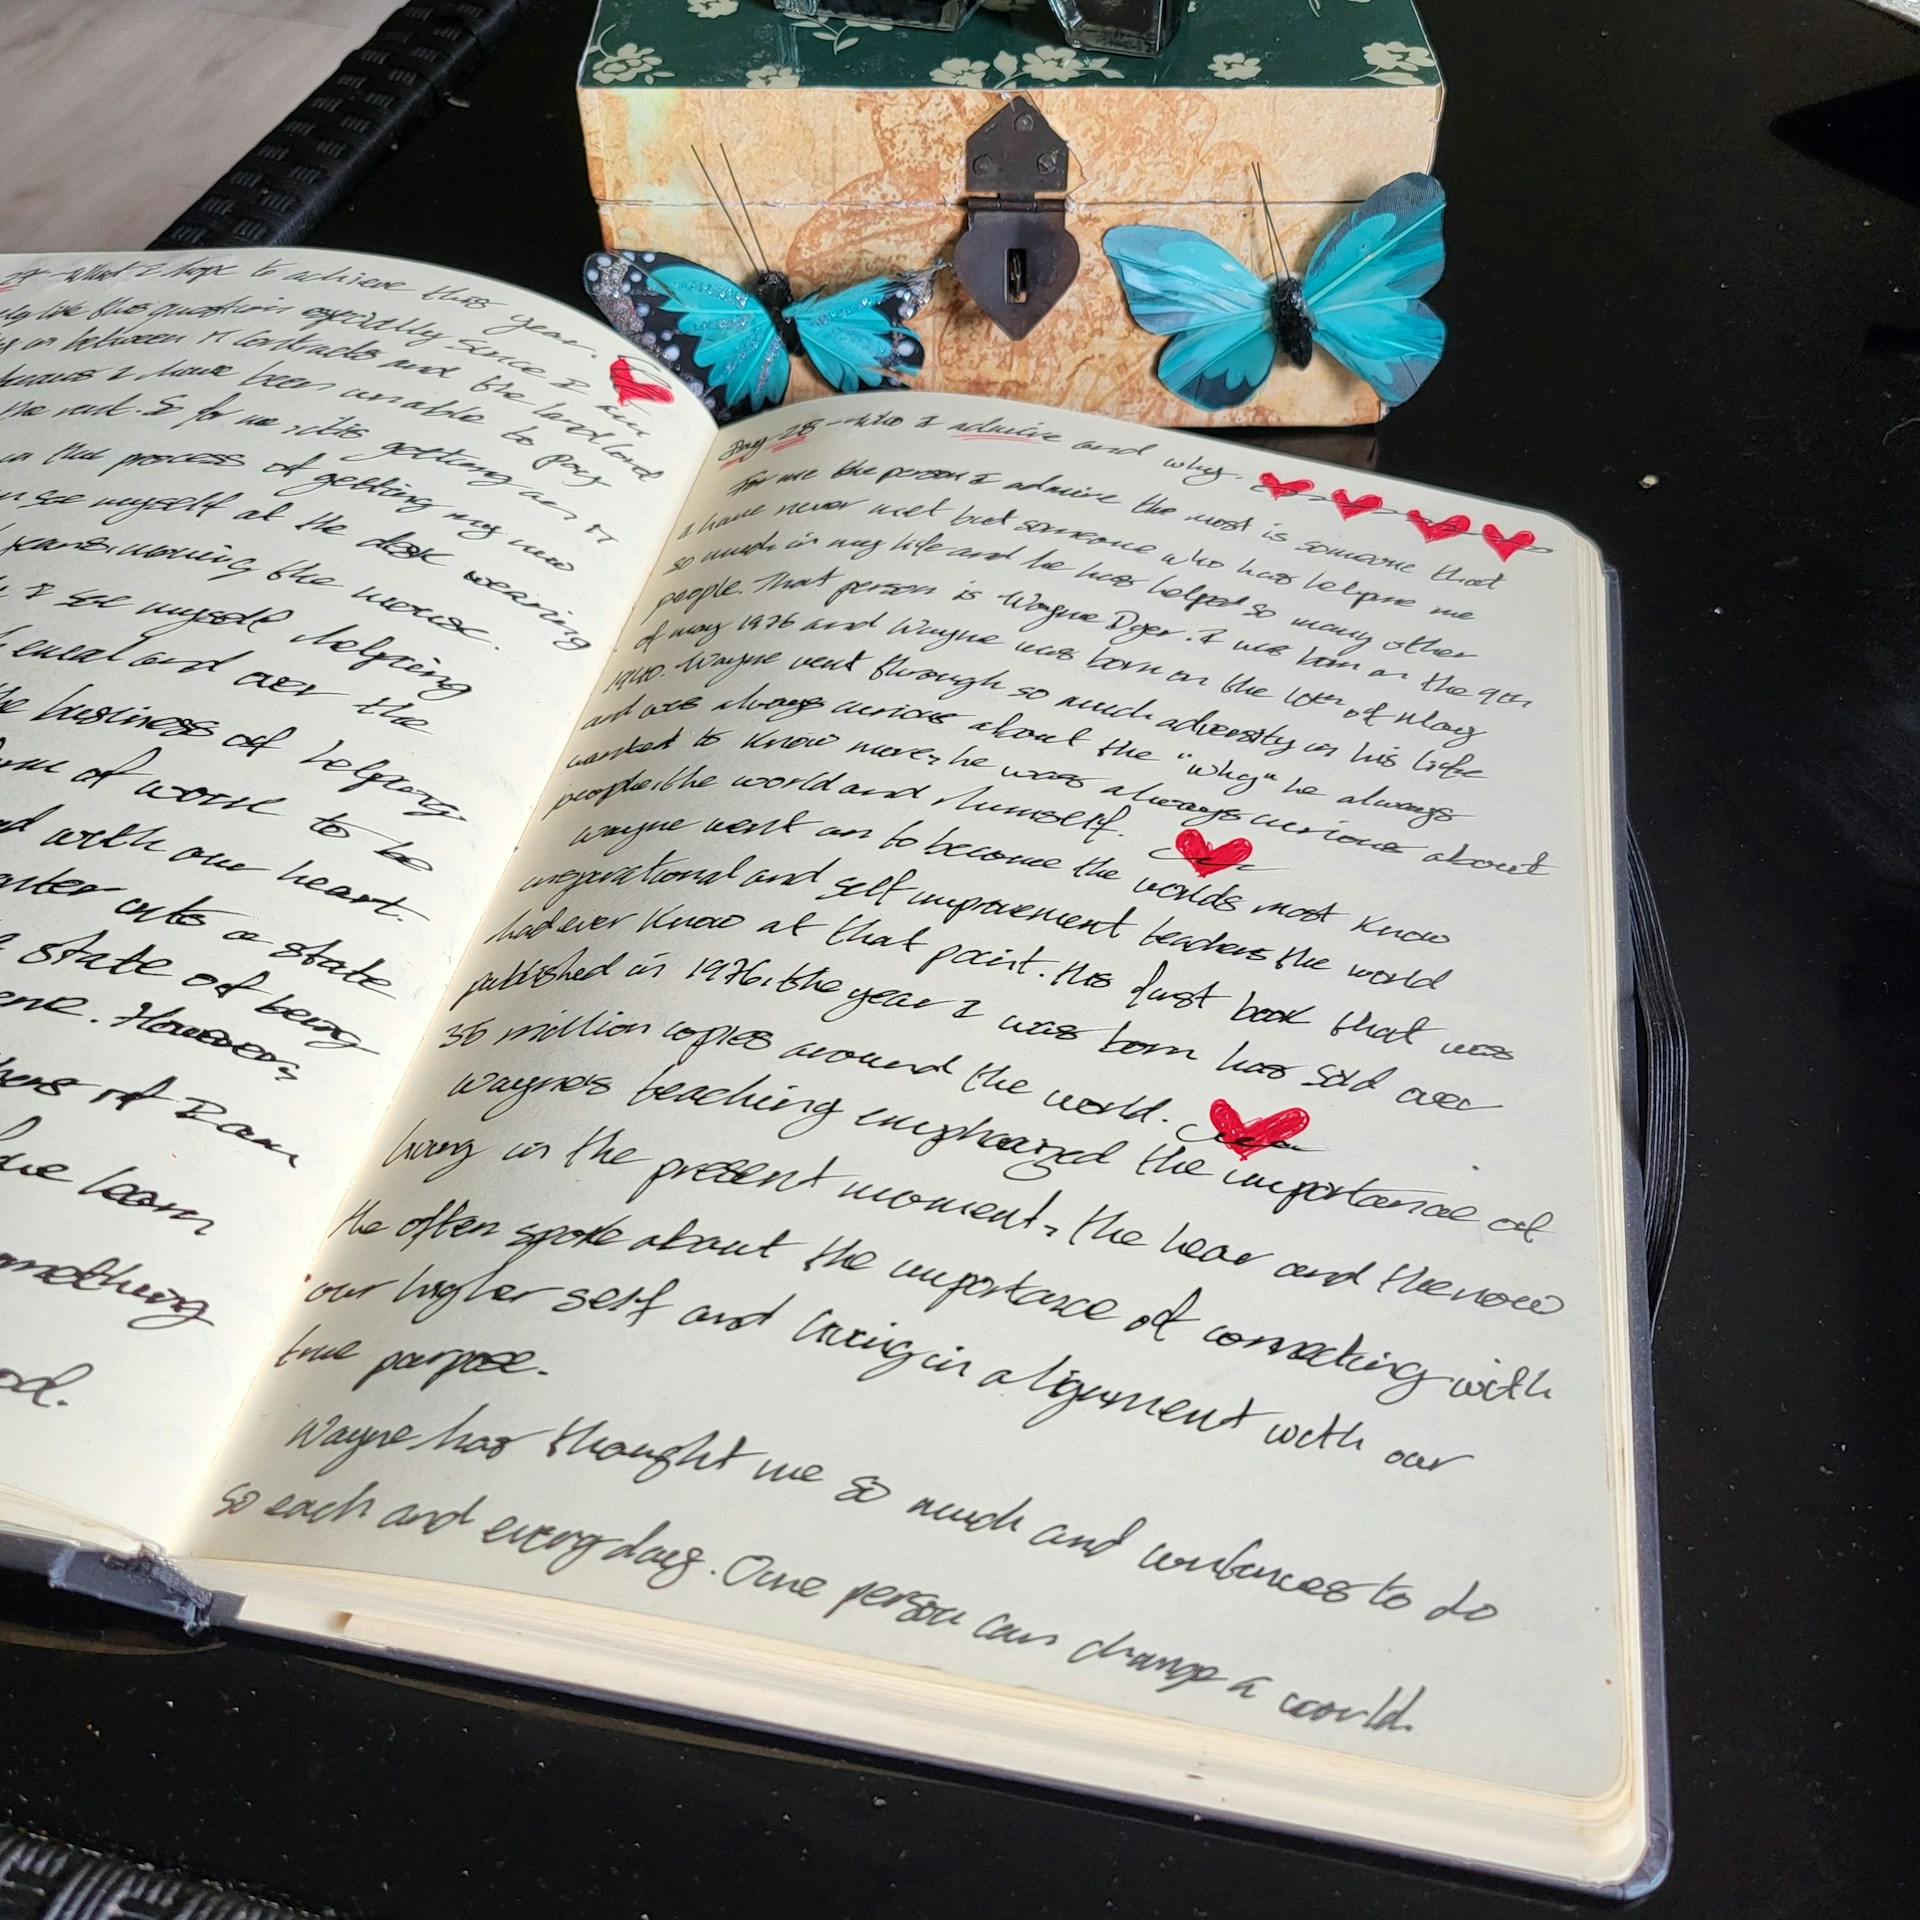 27 - what I hope to achieve this year.
like this question especially since I am
in between IT contracts and the landlord
I have been unable to pay
the rent. So for me, it's getting an IT
in the process of getting my new
see myself at the desk wearing
jeans, moving the mouse.
I see myself helping
email and over the
the business of helping
of work to be
with our heart.
enter into a state
state of being
However,
learn
something
Day 28 - who I admire and why.
For me the person I admire the most is someone that
I have never met but someone who has helping me
so much in my life and he has helped so many other
people. That person is Wayne Dyer. I was born on the 9th
of may 1976 and Wayne was born on the 10th of May
1940. Wayne went through so much adversity in his life
and was always curious about the "why" he always
wanted to know more, he was always curious about
people, the world and himself.
Wayne went on to become the worlds most know
inspirational and self improvement teachers the world
had ever know at that point. His first book that was
published in 1976, the year I was born has sold over
35 million copies around the world.
Wayne's teaching emphasized the importance of
living in the present moment, the hear and the now
He often spoke about the importance of connecting with
our higher self and living in alignment with our
true purpose.
Wayne has thought me so much and continues to do
so each and every day. One person can change a world.